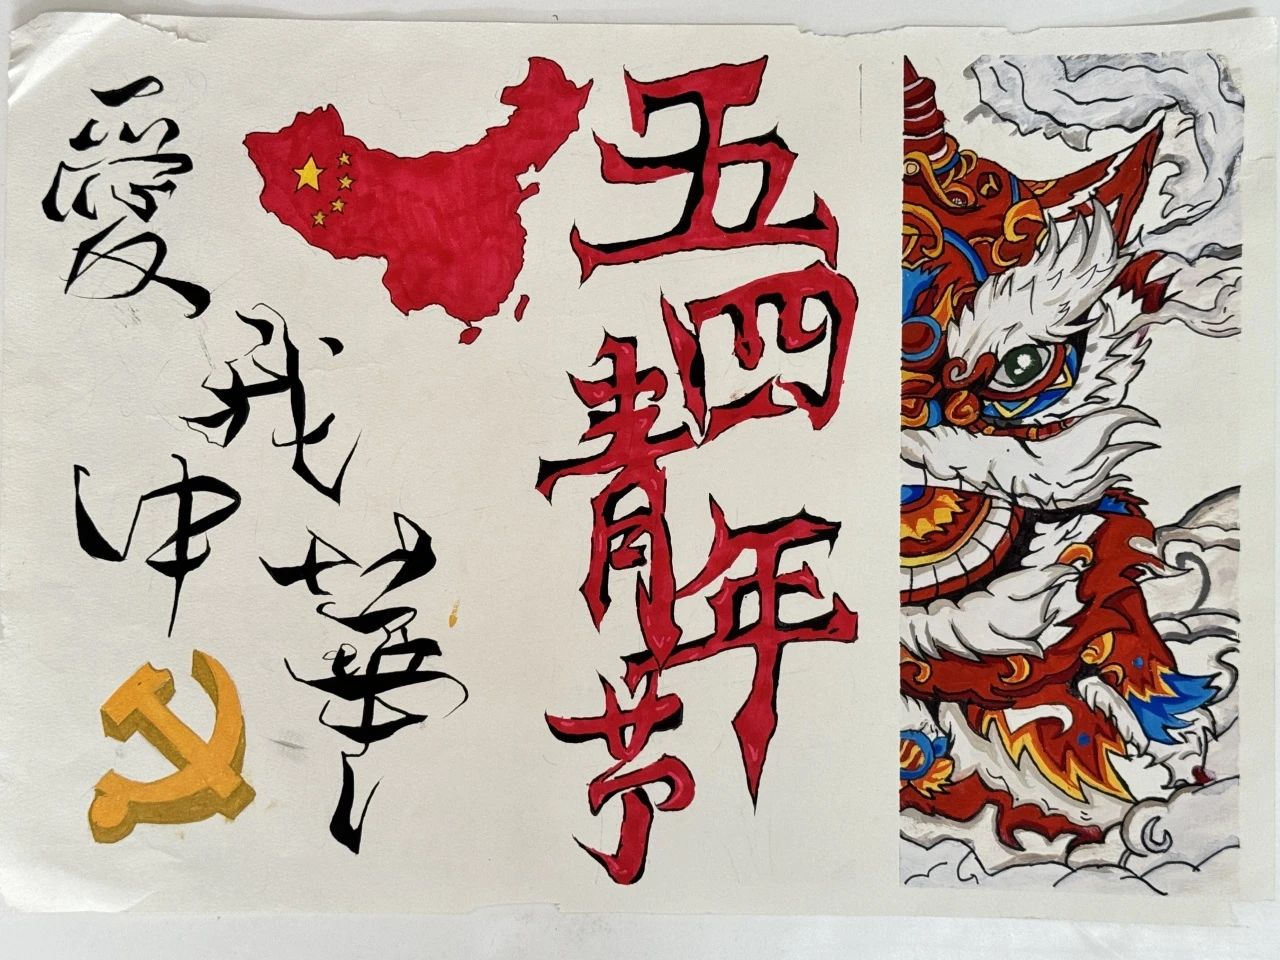 愛我中華
五四青年节